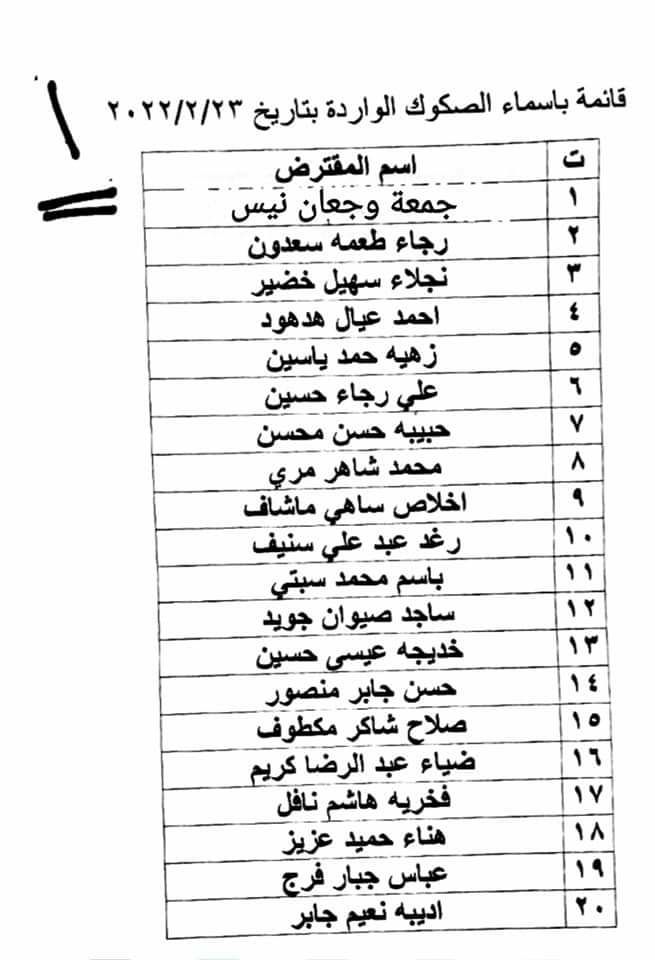 ١
قائمة باسماء الصكوك الواردة بتاريخ ٢٠٢٢/٢/٢٣
ت اسم المقترض
١ جمعة وجعان نيس
٢ رجاء طعمه سعدون
٣ نجلاء سهيل خضير
٤ احمد عيال هدهود
٥ زهيه حمد ياسين
٦ علي رجاء حسين
٧ حبيبه حسن محسن
٨ محمد شاهر مري
٩ اخلاص ساهي ماشاف
١٠ رغد عبد علي سنيف
١١ باسم محمد سبتي
١٢ ساجد صيوان جويد
١٣ خديجه عيسى حسين
١٤ حسن جابر منصور
١٥ صلاح شاكر مكطوف
١٦ ضياء عبد الرضا كريم
١٧ فخريه هاشم نافل
١٨ هناء حميد عزيز
١٩ عباس جبار فرج
٢٠ اديبه نعيم جابر